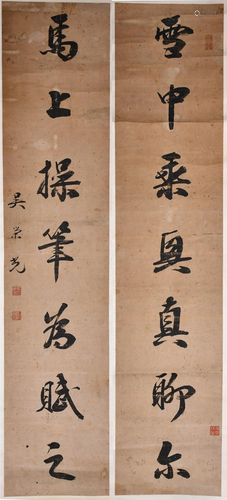 雪中乘興真聊尔
馬上操筆為賦之
吳荣光